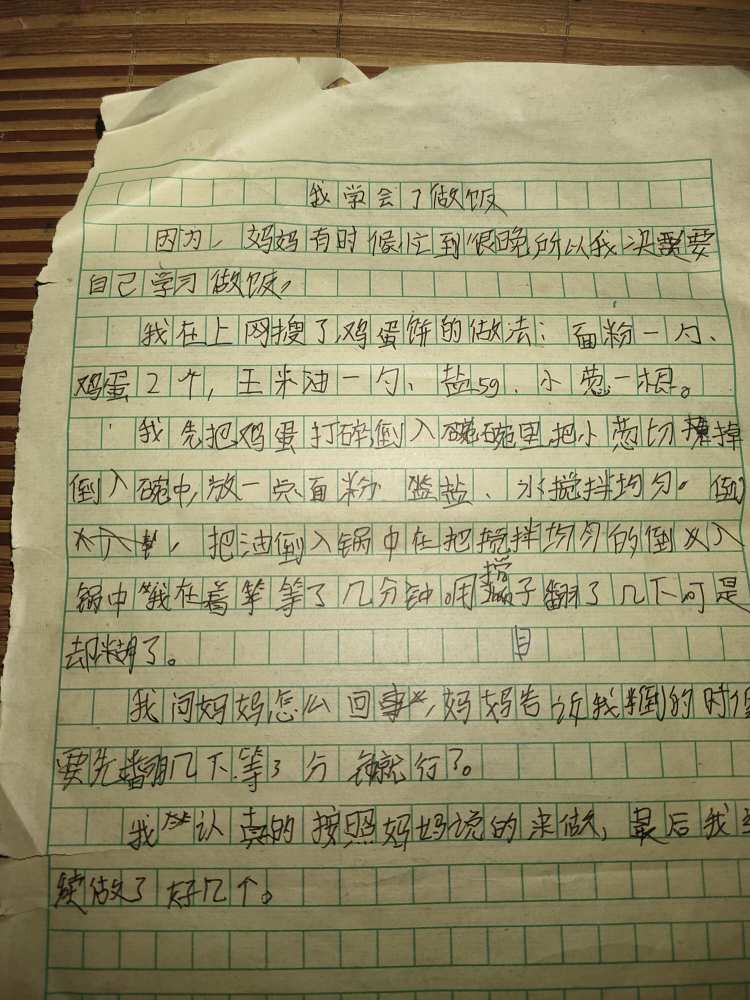 我学会了做饭
因为,妈妈有时候忙到很晚所以我决要
自己学习做饭,
我在上网搜了鸡蛋饼的做法:面粉一勺、
鸡蛋2个,玉米油一勺、盐5g、小葱一根。
我先把鸡蛋打碎倒入碗里,把小葱切掉
倒入碗中,放一点面粉 盐、水搅拌均匀。倒
,把油倒入锅中在把搅拌均匀的倒入
锅中我在着等等了几分钟用子翻了几下可是
却糊了。
我问妈妈怎么回事,妈妈告诉我倒的时
要先翻几下等3分钟就行了。
我认真的按照妈妈说的来做,最后我
续做了好几个。